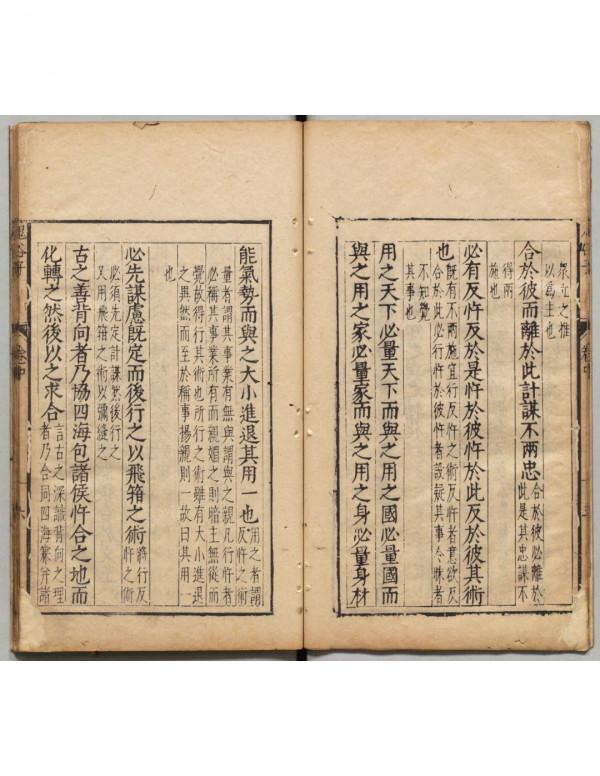 衆立之推
以爲主也
合於彼而離於此計謀不兩忠
合於彼必離於
此是其忠謀不
得兩
施也
必有反忤反於是忤於彼忤於此反於彼其術
也
既有不兩施宜行反忤之術反忤者意欲反
合於此必行忤於彼忤者設疑其事令昧者
不知覺
其事也
用之天下必量天下而與之用之國必量國而
與之用之家必量家而與之用之身必量身材
能氣勢而與之大小進退其用一也
用之者謂
反忤之術
量者謂其事業有無與謂與之親凡行忤者
必稱其事業所有而親媚之則暗主無從而
覺故得行其術也所行之術雖有大小進退
之異然而至於稱事揚親則一故曰其用一
也
必先謀慮既定而後行之以飛箝之術
將行反
忤之術
必須先定計謀然後行之
又用飛箝之術以彌縫之
古之善背向者乃協四海包諸侯忤合之地而
化轉之然後以之求合
言古之深識背向之理
者乃合同四海兼并諸
鬼谷子
卷中